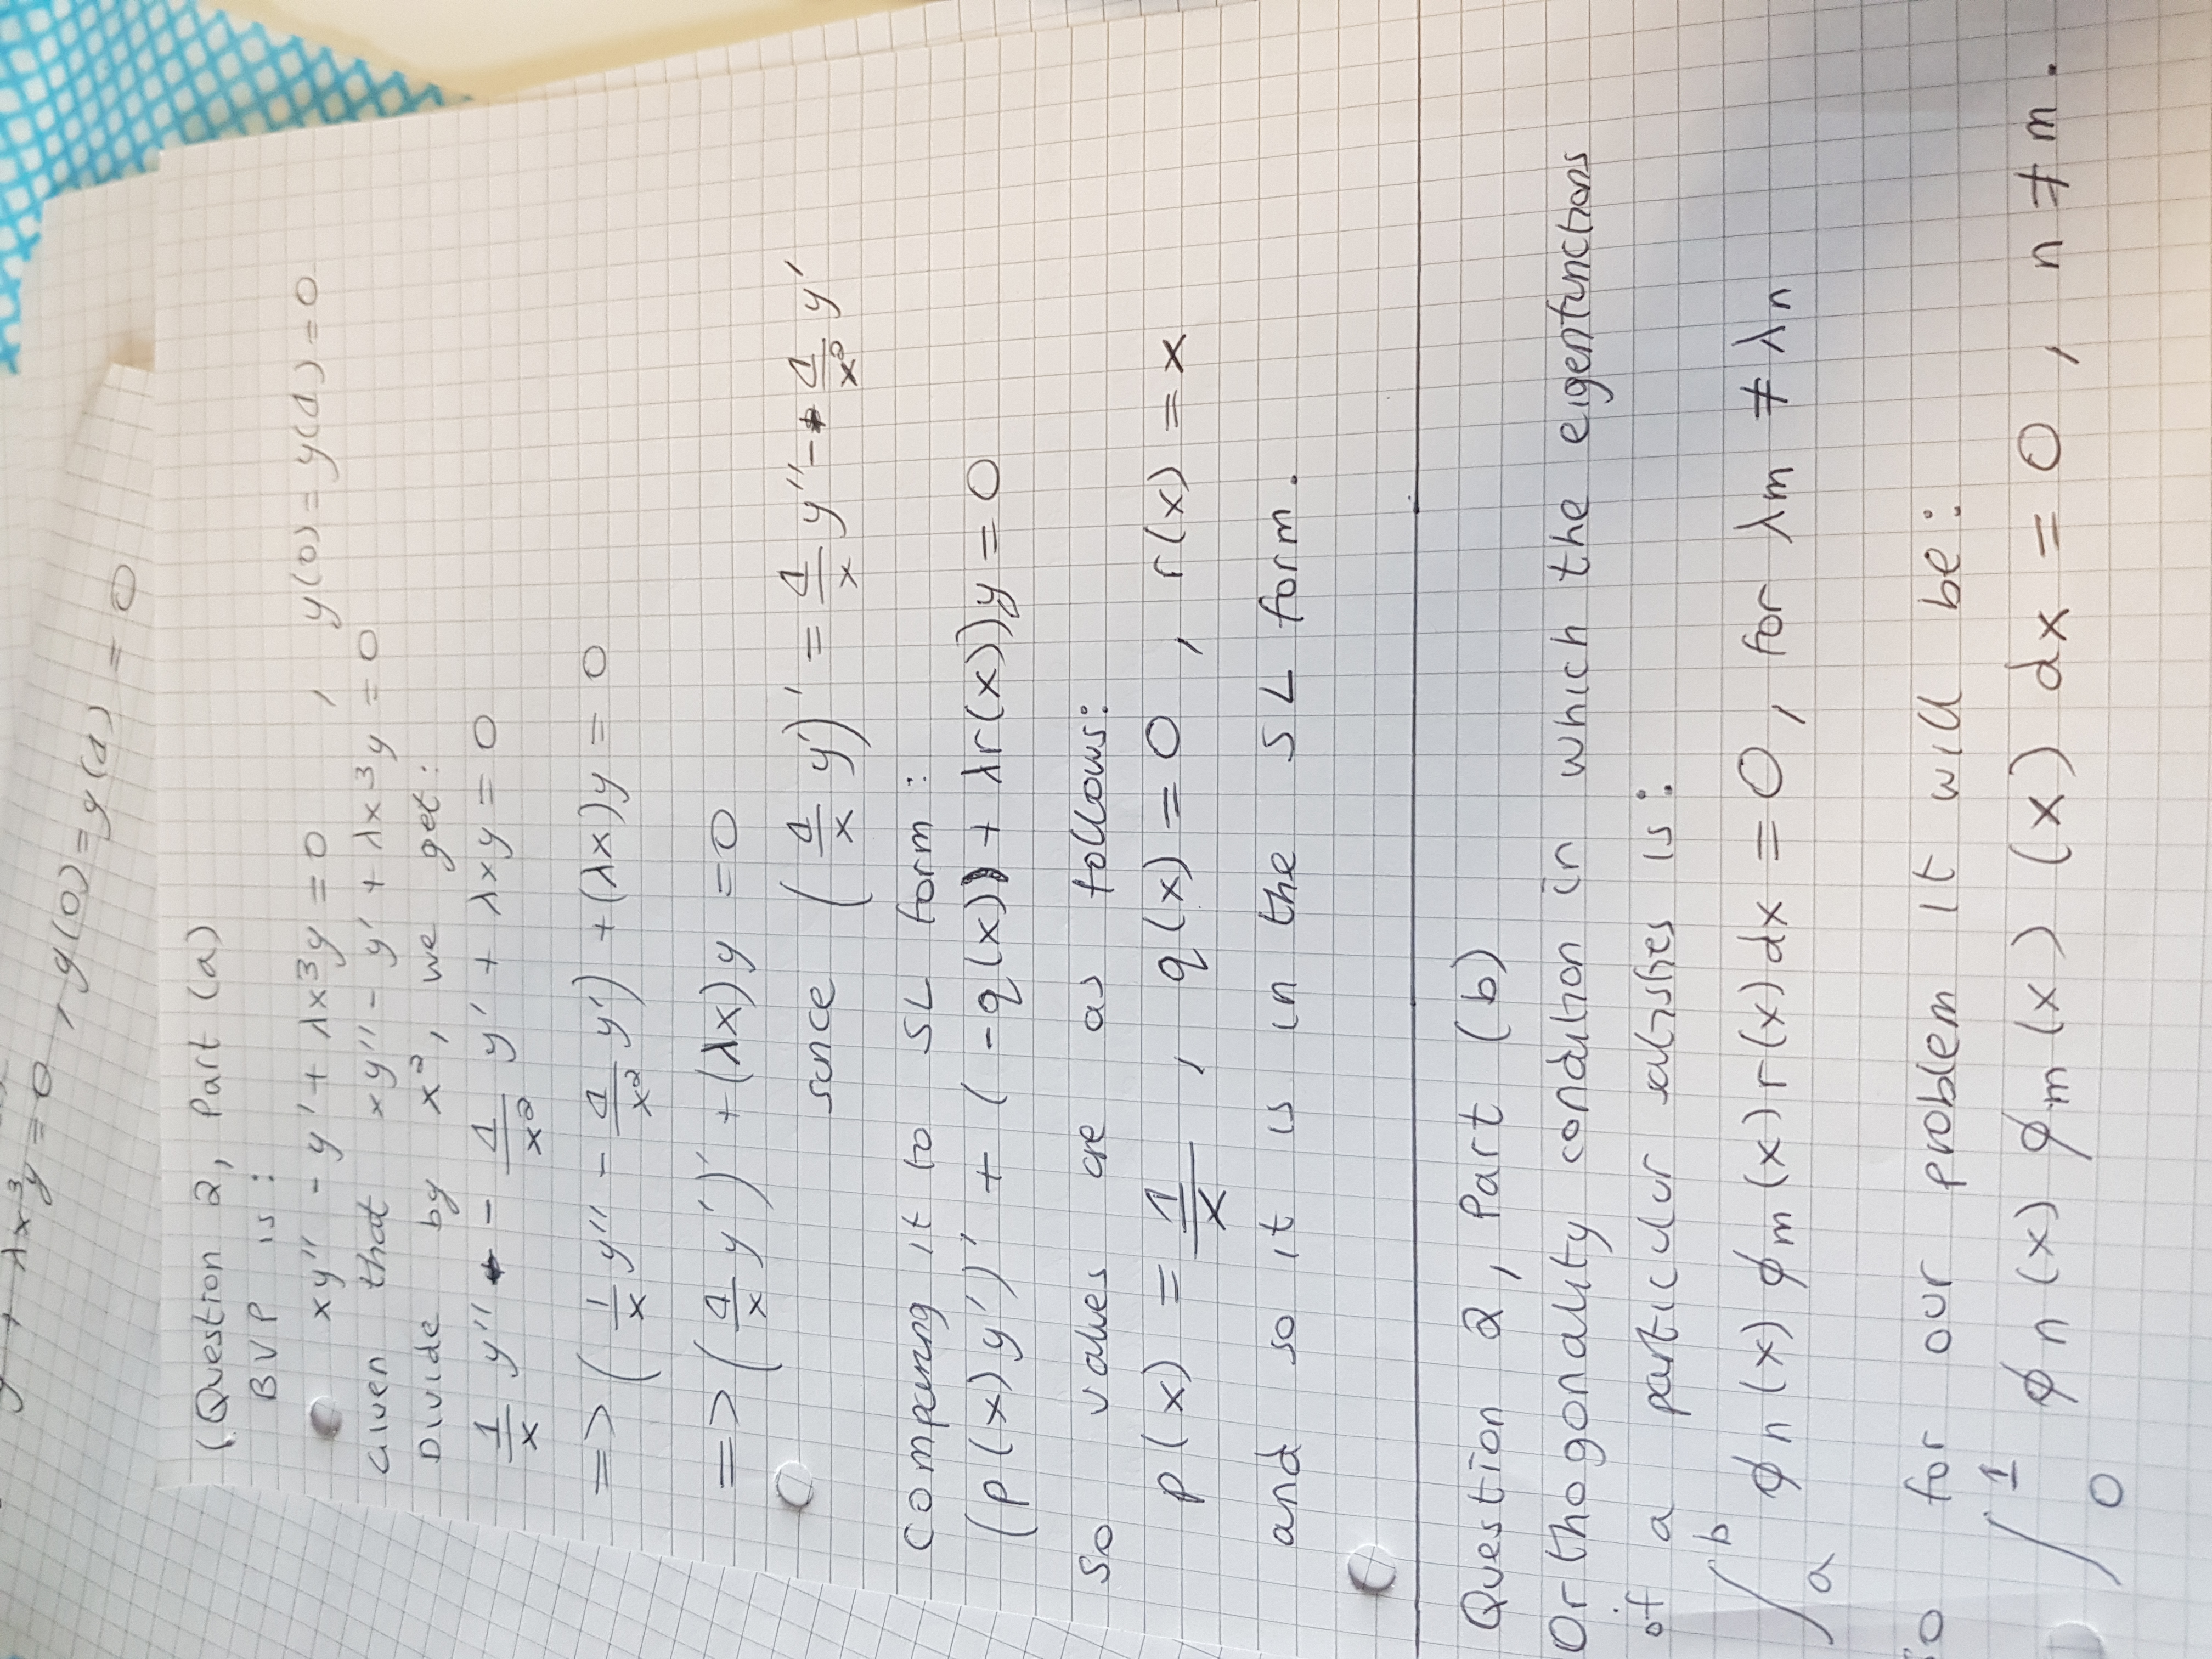 y + λx³y = 0 , y(0) = y(1) = 0
(Question 2, Part (a)
BVP is:
xy'' - y' + λx³y = 0 , y(0) = y(1) = 0
Given that xy'' - y' + λx³y = 0
Divide by x², we get:
1/x y'' - 1/x² y' + λxy = 0
=> (1/x y'' - 1/x² y') + (λx)y = 0
=> (1/x y')' + (λx)y = 0
since (1/x y')' = 1/x y'' - 1/x² y'
Comparing it to SL form:
(p(x)y')' + (-q(x) + λr(x))y = 0
So values are as follows:
p(x) = 1/x , q(x) = 0 , r(x) = x
and so it is in the SL form.
Question 2, Part (b)
Orthogonality condition in which the eigenfunctions
of a particular satisfies is:
∫_a^b φn(x) φm(x) r(x) dx = 0 , for λm ≠ λn
So for our problem it will be:
∫_0^1 φn(x) φm(x) (x) dx = 0 , n ≠ m.